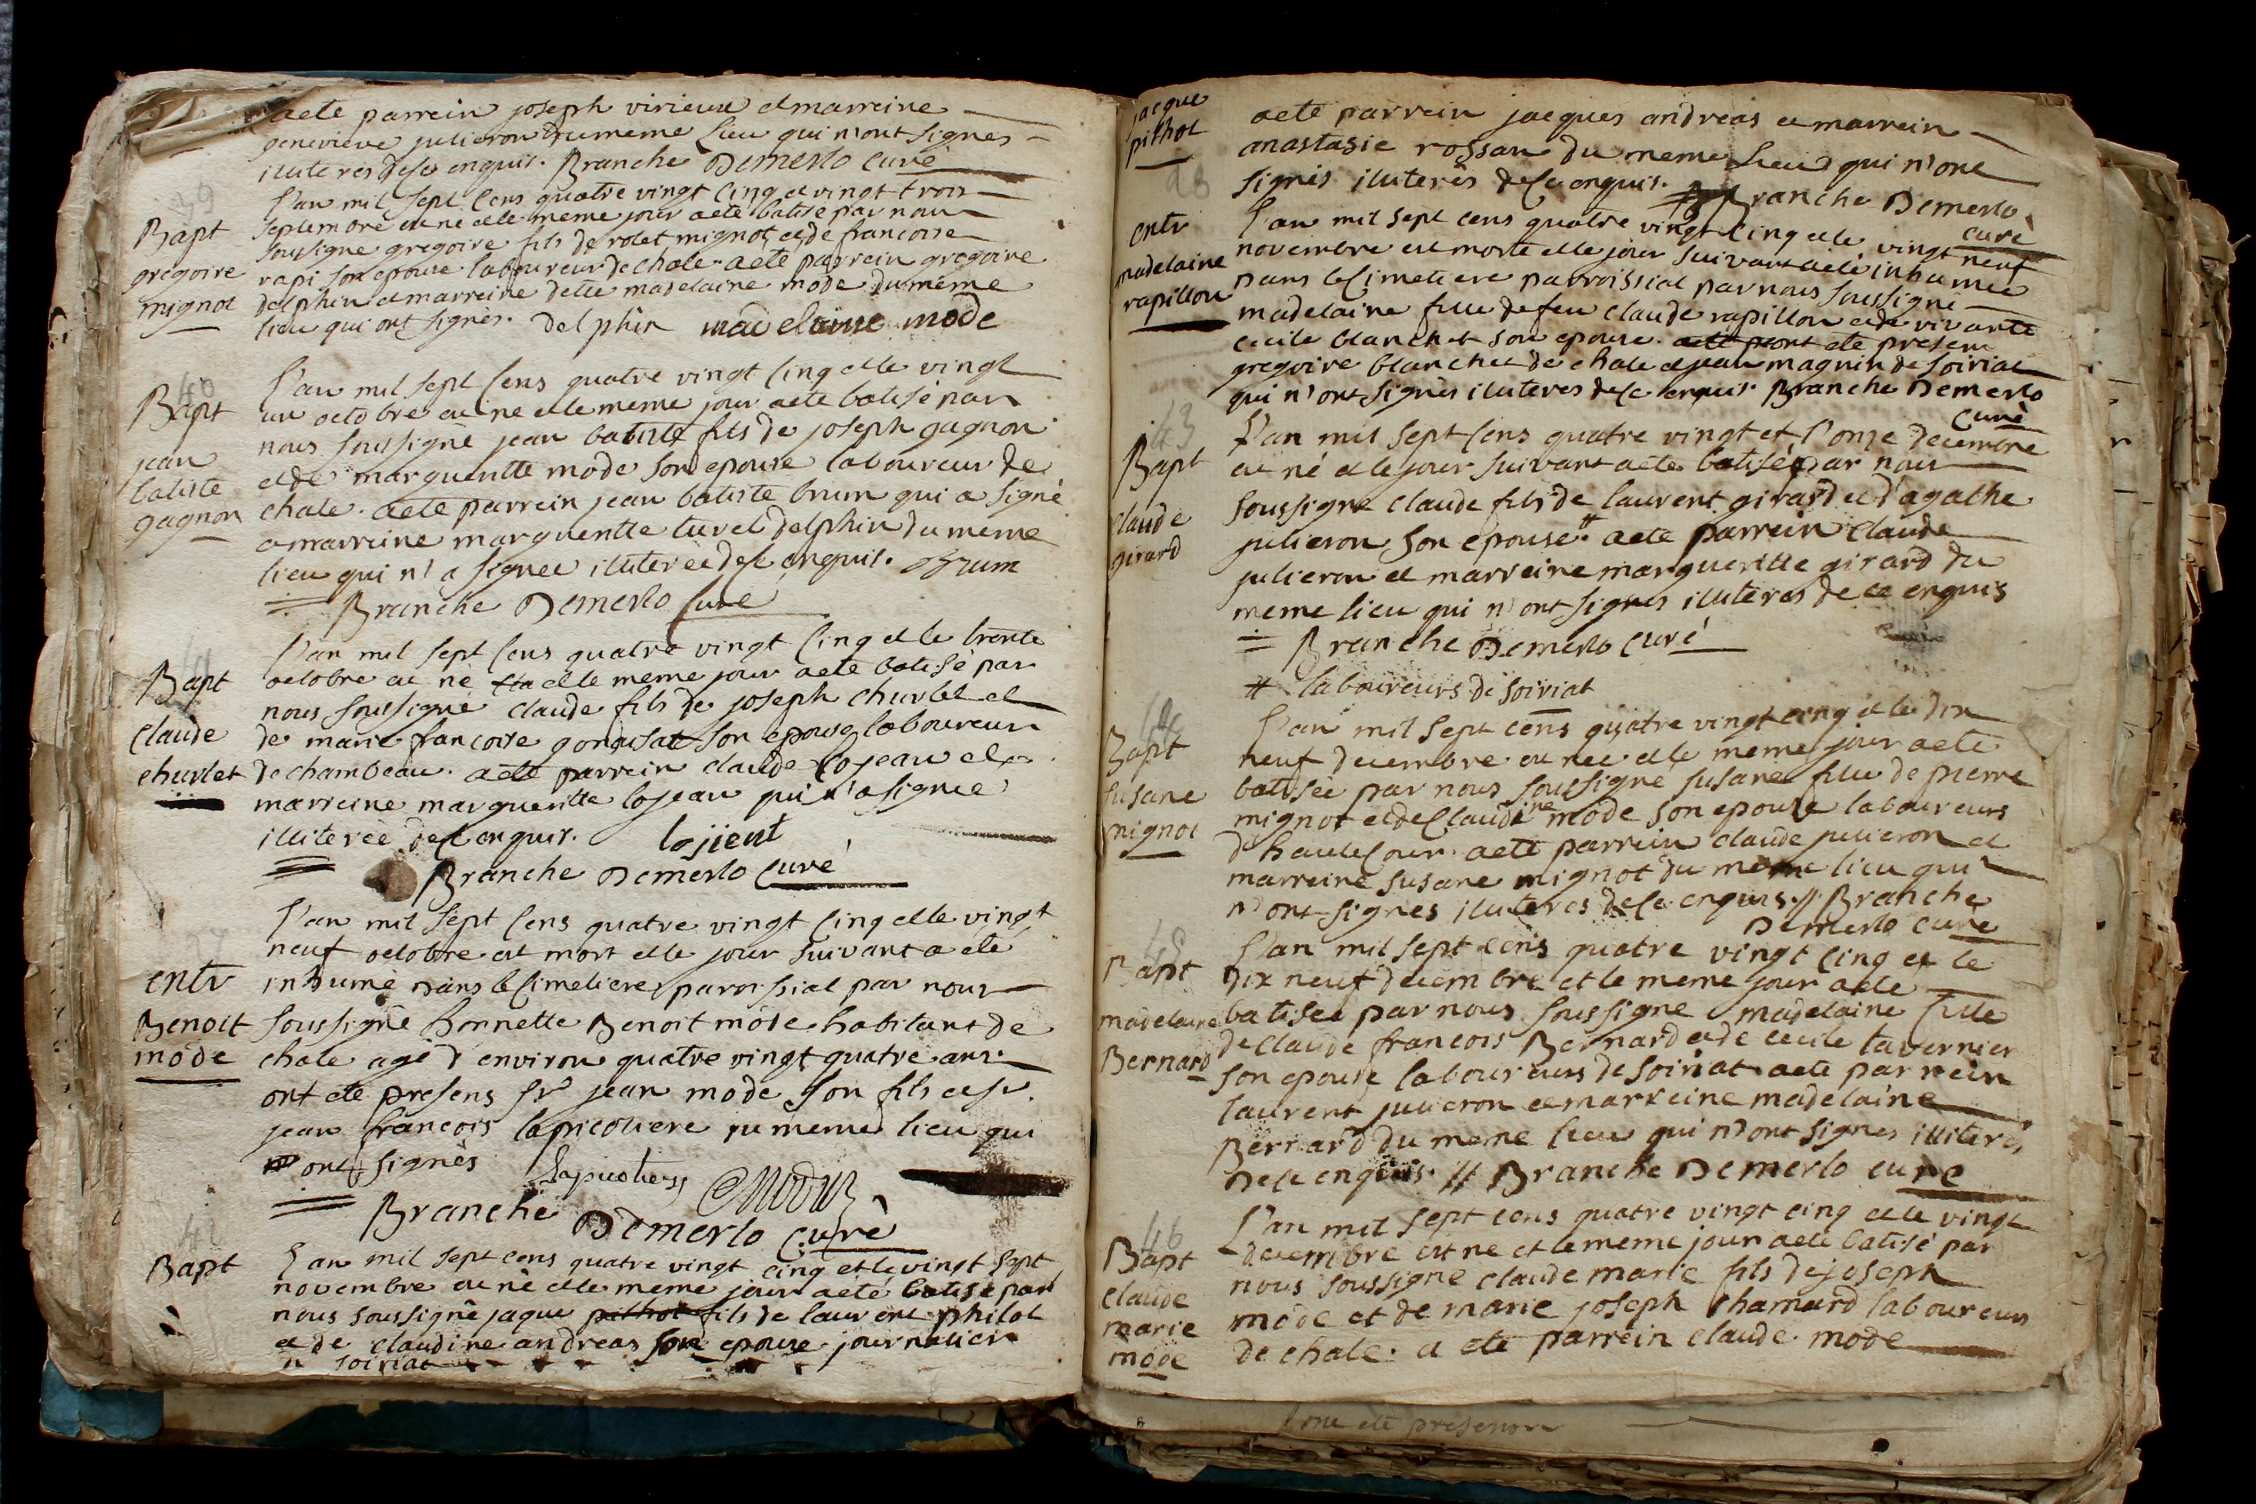 aete parrein joseph virieux et marreine
genevieve julieron du meme lieu qui n'ont signes
illiteres de ce enquis. Branche Demerlo curé
39
Bapt
gregoire
mignot
L'an mil sept cens quatre vingt cinq et vingt trois
septembre est ne et le meme jour aete batisé par nous
soussigne gregoire fils de rolet mignot et de francoise
rapi son epouse laboureur de chale. aete parrein gregoire
delphin et marreine dette madelaine mode du meme
lieu qui ont signès. delphin madelaine mode
40
Bapt
jean
batiste
gagnon
L'an mil sept cens quatre vingt cinq et le vingt
un octobre est ne et le meme jour aete batisé par
nous soussignè jean batiste fils de joseph gagnon
et de margueritte mode son epouse laboureur de
chale. aete parrein jean batiste brun qui a signé
et marreine margueritte turel delphin du meme
lieu qui n'a signee illiterèe de ce enquis. brun
Branche Demerlo curé
41
Bapt
claude
churlet
L'an mil sept cens quatre vingt cinq et le trente
octobre est ne et le meme jour aete batisé par
nous soussigné claude fils de joseph churlet et
de marie francoise son epouse laboureur
de chambeau. aete parrein claude lojean et
marreine margueritte lojean qui n'a signée
illiterèe de ce enquis. lojient
Branche Demerlo curé
27
entr
Benoit
mode
L'an mil sept cens quatre vingt cinq et le vingt
neuf octobre est mort et le jour suivant a eté
inhumé dans le cimetiere paroissial par nous
soussigné honnette Benoit mode habitant de
chale agé d'environ quatre vingt quatre ans.
ont ete presens sr jean mode son fils et sr.
jean francois lapicotiere du meme lieu qui
ont signès Lapicotiere Mode
Branche Demerlo curè
42
Bapt
L'an mil sept cens quatre vingt cinq et le vingt sept
novembre est né et le meme jour aeté batisé par
nous soussigné jaque pithot fils de laurent philot
et de claudine andreas son epouse journalier
a soiriat
jacque
pithot
aete parrein jacques andreas et marrein
anastasie rossan du meme lieu qui n'ont
signés illiterès de ce enquis. Branche Demerlo
curé
28
entr
madelaine
rapillon
L'an mil sept cens quatre vingt cinq et le vingt neuf
novembre est morte et le jour suivant aeté inhumée
dans le cimetiere parroissial par nous soussigné
madelaine fille de feu claude rapillon et de vivante
cecile blanchet son epouse. ont ete presens
gregoire blanchet de chale et jean magnin de soiriat
qui n'ont signès illiteres de ce enquis. Branche Demerlo
curè
43
Bapt
claude
girard
L'an mil sept cens quatre vingt et l'onze decembre
est né et le jour suivant aete batisé par nous
soussigne claude fils de laurent girard et d'agathe
julieron son epouse # aete parrein claude
julieron et marreine margueritte girard du
meme lieu qui n'ont signes illiteres de ce enquis
Branche Demerlo curé
# laboureurs de soiriat
44
Bapt
susane
mignot
L'an mil sept cens quatre vingt cinq et le dix
neuf decembre est nee et le meme jour aete
batisée par nous soussigné susane fille de pierre
mignot et de claudine mode son epouse laboureurs
d'hautecour. aete parrein claude julieron et
marreine susane mignot du meme lieu qui
n'ont signes illiteres de ce enquis. // Branche
Demerlo curè
45
Bapt
madelaine
Bernard
L'an mil sept cens quatre vingt cinq et le
dix neuf decembre et le meme jour aete
batisée par nous soussigne madelaine fille
de claude francois Bernard et de cecile tavernier
son epouse laboureurs de soiriat. aete parrein
laurent julieron et marreine madelaine
Bernard du meme lieu qui n'ont signes illiterés
de ce enquis. // Branche Demerlo cure
46
Bapt
claude
marie
mode
L'an mil sept cens quatre vingt cinq et le vingt
decembre est ne et le meme jour aete batisé par
nous soussigne claude marie fils de joseph
mode et de marie joseph chamard laboureurs
de chale. a ete parrein claude mode
ont ete presens